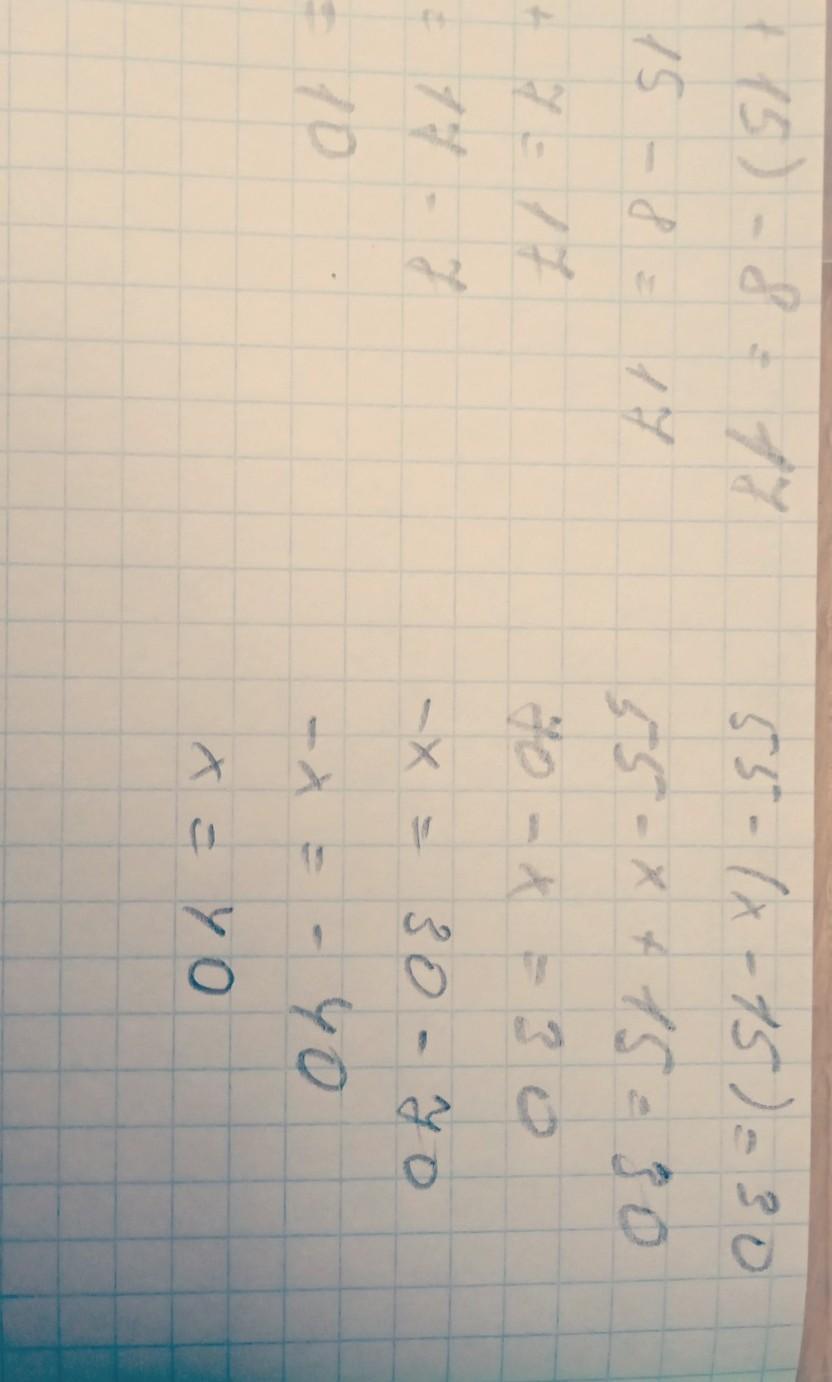 + 15) - 8 = 17
15 - 8 = 17
+ 7 = 17
= 17 - 7
= 10
55 - (x - 15) = 30
55 - x + 15 = 30
70 - x = 30
-x = 30 - 70
-x = - 40
x = 40